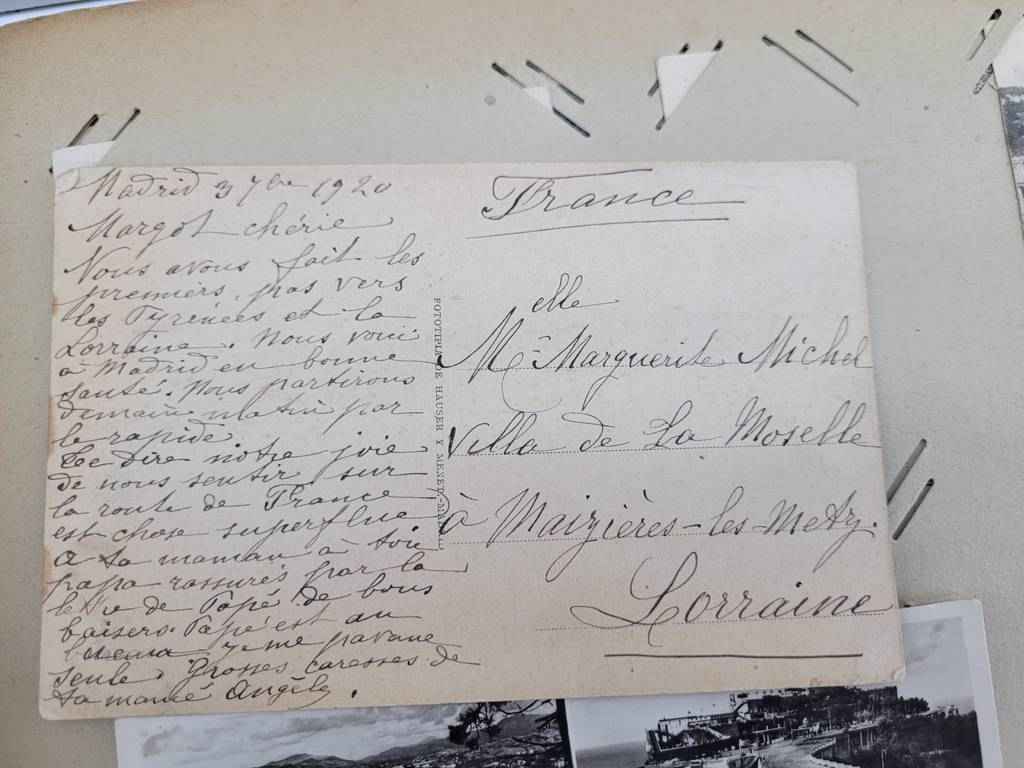 Madrid 3 7bre 1920
Margot chérie
Nous avons fait les
premiers pas vers
les Pyrénées et la
Lorraine. Nous voici
à Madrid en bonne
santé. Nous partirons
demain matin par
le rapide.
Te dire notre joie
de nous sentir sur
la route de France
est chose superflue
A ta maman à ton
papa rassurés par la
de Papé de bons
baisers. Papé est au
me pavane
seule. Grosses caresses de
ta mamé Angèle.
FOTOTIPIA DE HAUSER Y MENET.-MADRID
France
Melle Marguerite Michel
Villa de La Moselle
à Maizières-les-Metz.
Lorraine